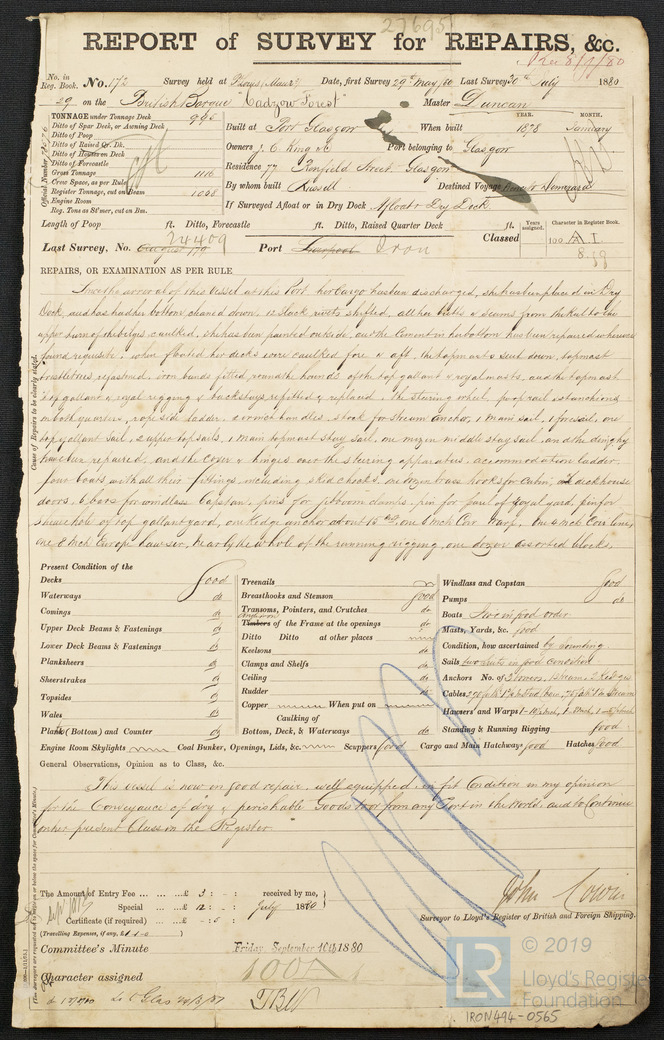 27695
REPORT of SURVEY for REPAIRS, &c.
Rec 8/9/80
No. in Reg. Book. No. 172 Survey held at P Louis, Maur's Date, first Survey 29th May, 80 Last Survey 30th July 1880
29 on the British Barque "Cadzow Forest" Master Duncan
TONNAGE under Tonnage Deck 996
Ditto of Spar Deck, or Awning Deck
Ditto of Poop
Ditto of Raised Qr. Dk.
Ditto of Houses on Deck
Ditto of Forecastle
Gross Tonnage 1116
Crew Space, as per Rule
Register Tonnage, cut on Beam 1058
Engine Room
Reg. Tons as St'mer, cut on Bm.
Official Number
Built at Port Glasgow When built YEAR. 1878 MONTH. January
Owners J. C. King & Co Port belonging to Glasgow
Residence 77 Renfield Street, Glasgow
By whom built Russell Destined Voyage
If Surveyed Afloat or in Dry Dock Afloat & Dry Dock
Length of Poop ft. Ditto, Forecastle ft. Ditto, Raised Quarter Deck ft.
Last Survey, No. 24409 Port Liverpool Iron Classed Years assigned. Character in Register Book. 100 A I
REPAIRS, OR EXAMINATION AS PER RULE
Since the arrival of this Vessel at this Port her Cargo has been discharged, she has been placed in Dry
Dock, and has had her bottom cleaned down, 12 slack rivets shifted, all her butts & seams from the Keel to the
upper turn of the bilges caulked, she has been painted outside, and the Cement in her bottom has been repaired wherever
found requisite, when floated her decks were caulked fore & aft, the topmasts sent down, topmast
trestletrees refastened, iron bands fitted round the hounds of the top gallant & royal masts, and the topmast
top gallant & royal rigging & backstays refitted & replaced. The steering wheel, poop rail & stanchions
on both quarters, rope side ladder, 2 winch handles, stock for stream anchor, 1 main sail, 1 foresail, one
top gallant sail, 2 upper topsails, 1 main topmast stay sail, one mizen middle stay sail, and the dinghy
have been repaired, and the cover & hinges over the steering apparatus, accommodation ladder,
four boats with all their fittings, including skid chocks, one dozen brass hooks for Cabin, and deckhouse
doors, 6 bars for windlass Capstan, pins for jibboom clamps, pin for parl of royal yard, pin for
sheave hole of top gallant yard, one Kedge anchor about 15 cwt, one 6 inch Coir Warp, one 4 inch Coir line,
one 8 inch Europe hawser, nearly the whole of the running rigging, one dozen assorted blocks.
Cause of Repairs to be clearly stated.
Present Condition of the
Decks good
Waterways do
Comings do
Upper Deck Beams & Fastenings do
Lower Deck Beams & Fastenings do
Planksheers do
Sheerstrakes do
Topsides do
Wales do
Plank (Bottom) and Counter do
Treenails
Breasthooks and Stemson good
Transoms, Pointers, and Crutches do
Timbers of the Frame at the openings do
Ditto Ditto at other places
Keelsons do
Clamps and Shelfs do
Ceiling do
Rudder do
Copper When put on
Caulking of
Bottom, Deck, & Waterways do
Windlass and Capstan good
Pumps do
Boats Five in good order
Masts, Yards, &c. good
Condition, how ascertained by sounding
Sails two suits in good condition
Anchors No. of 3 Bowers, 1 Stream, 2 Kedges
Cables
Hawsers and Warps
Standing & Running Rigging good
Engine Room Skylights Coal Bunker, Openings, Lids, &c. Scuppers good Cargo and Main Hatchways good Hatches good
General Observations, Opinion as to Class, &c.
This vessel is now in good repair, well equipped, in fit Condition in my opinion
for the Conveyance of dry & perishable Goods to or from any Port in the World, and to Continue
in her present Class in the Register.
The Amount of Entry Fee ... £ 3 : - : received by me,
Special ... £ 12 : - : July 1880
Certificate (if required) ... £ - : 0 :
(Travelling Expenses, if any, £ )
John Cowin
Surveyor to Lloyd's Register of British and Foreign Shipping.
Committee's Minute Friday September 10th 1880
Character assigned 100A1
TBW
© 2019
LR
Lloyd's Register Foundation
IRON494-0565